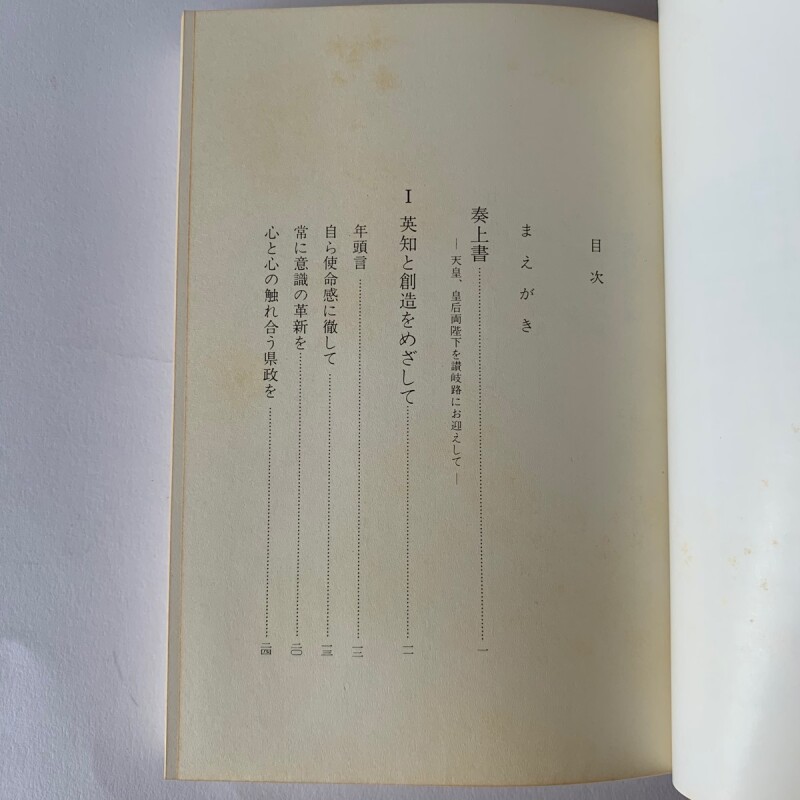 目次
まえがき
奏上書……一
―天皇、皇后両陛下を讃岐路にお迎えして―
I 英知と創造をめざして……一一
年頭言……一二
自ら使命感に徹して……一三
常に意識の革新を……二〇
心と心の触れ合う県政を……二四